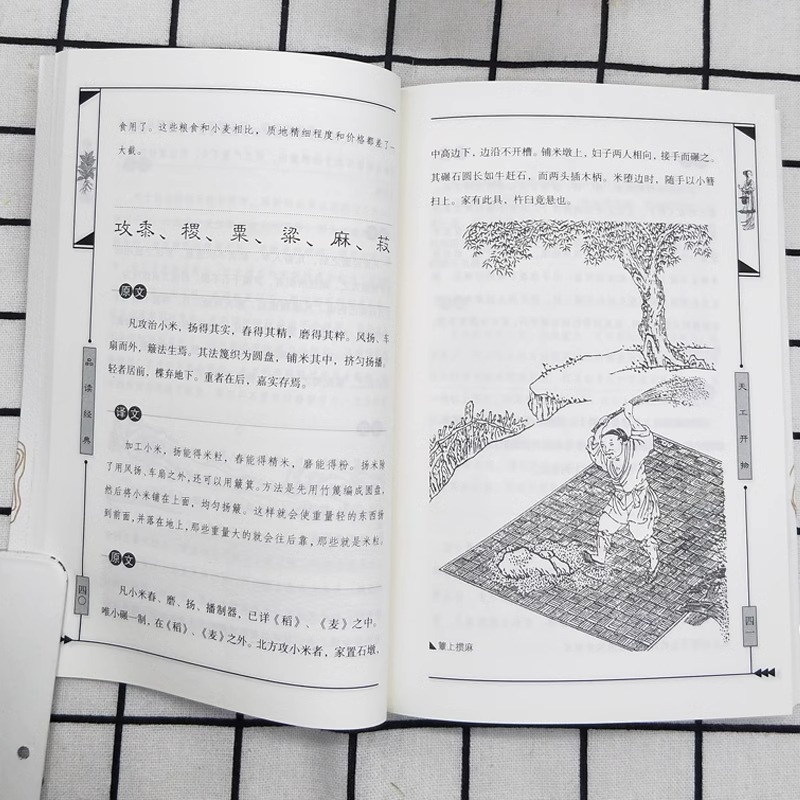 食用了。这些粮食和小麦相比，质地精细程度和价格都差了一
大截。
攻黍、稷、粟、粱、麻、菽
原文
凡攻治小米，扬得其实，舂得其精，磨得其粹。风扬、车
扇而外，簸法生焉。其法篾织为圆盘，铺米其中，挤匀扬播。
轻者居前，揲弃地下。重者在后，嘉实存焉。
译文
加工小米，扬能得米粒，舂能得精米，磨能得粉。扬米除
了用风扬、车扇之外，还可以用簸箕。方法是先用竹篾编成圆盘，
然后将小米铺在上面，均匀扬簸。这样就会使重量轻的东西扬
到前面，并落在地上，那些重量大的就会往后靠，那些就是米粒。
原文
凡小米舂、磨、扬、播制器，已详《稻》、《麦》之中。
唯小碾一制，在《稻》、《麦》之外。北方攻小米者，家置石墩，
品读经典
四〇
中高边下，边沿不开槽。铺米墩上，妇子两人相向，接手而碾之。
其碾石圆长如牛赶石，而两头插木柄。米堕边时，随手以小彗
扫上。家有此具，杵臼竟悬也。
上掼麻
天工开物
四一